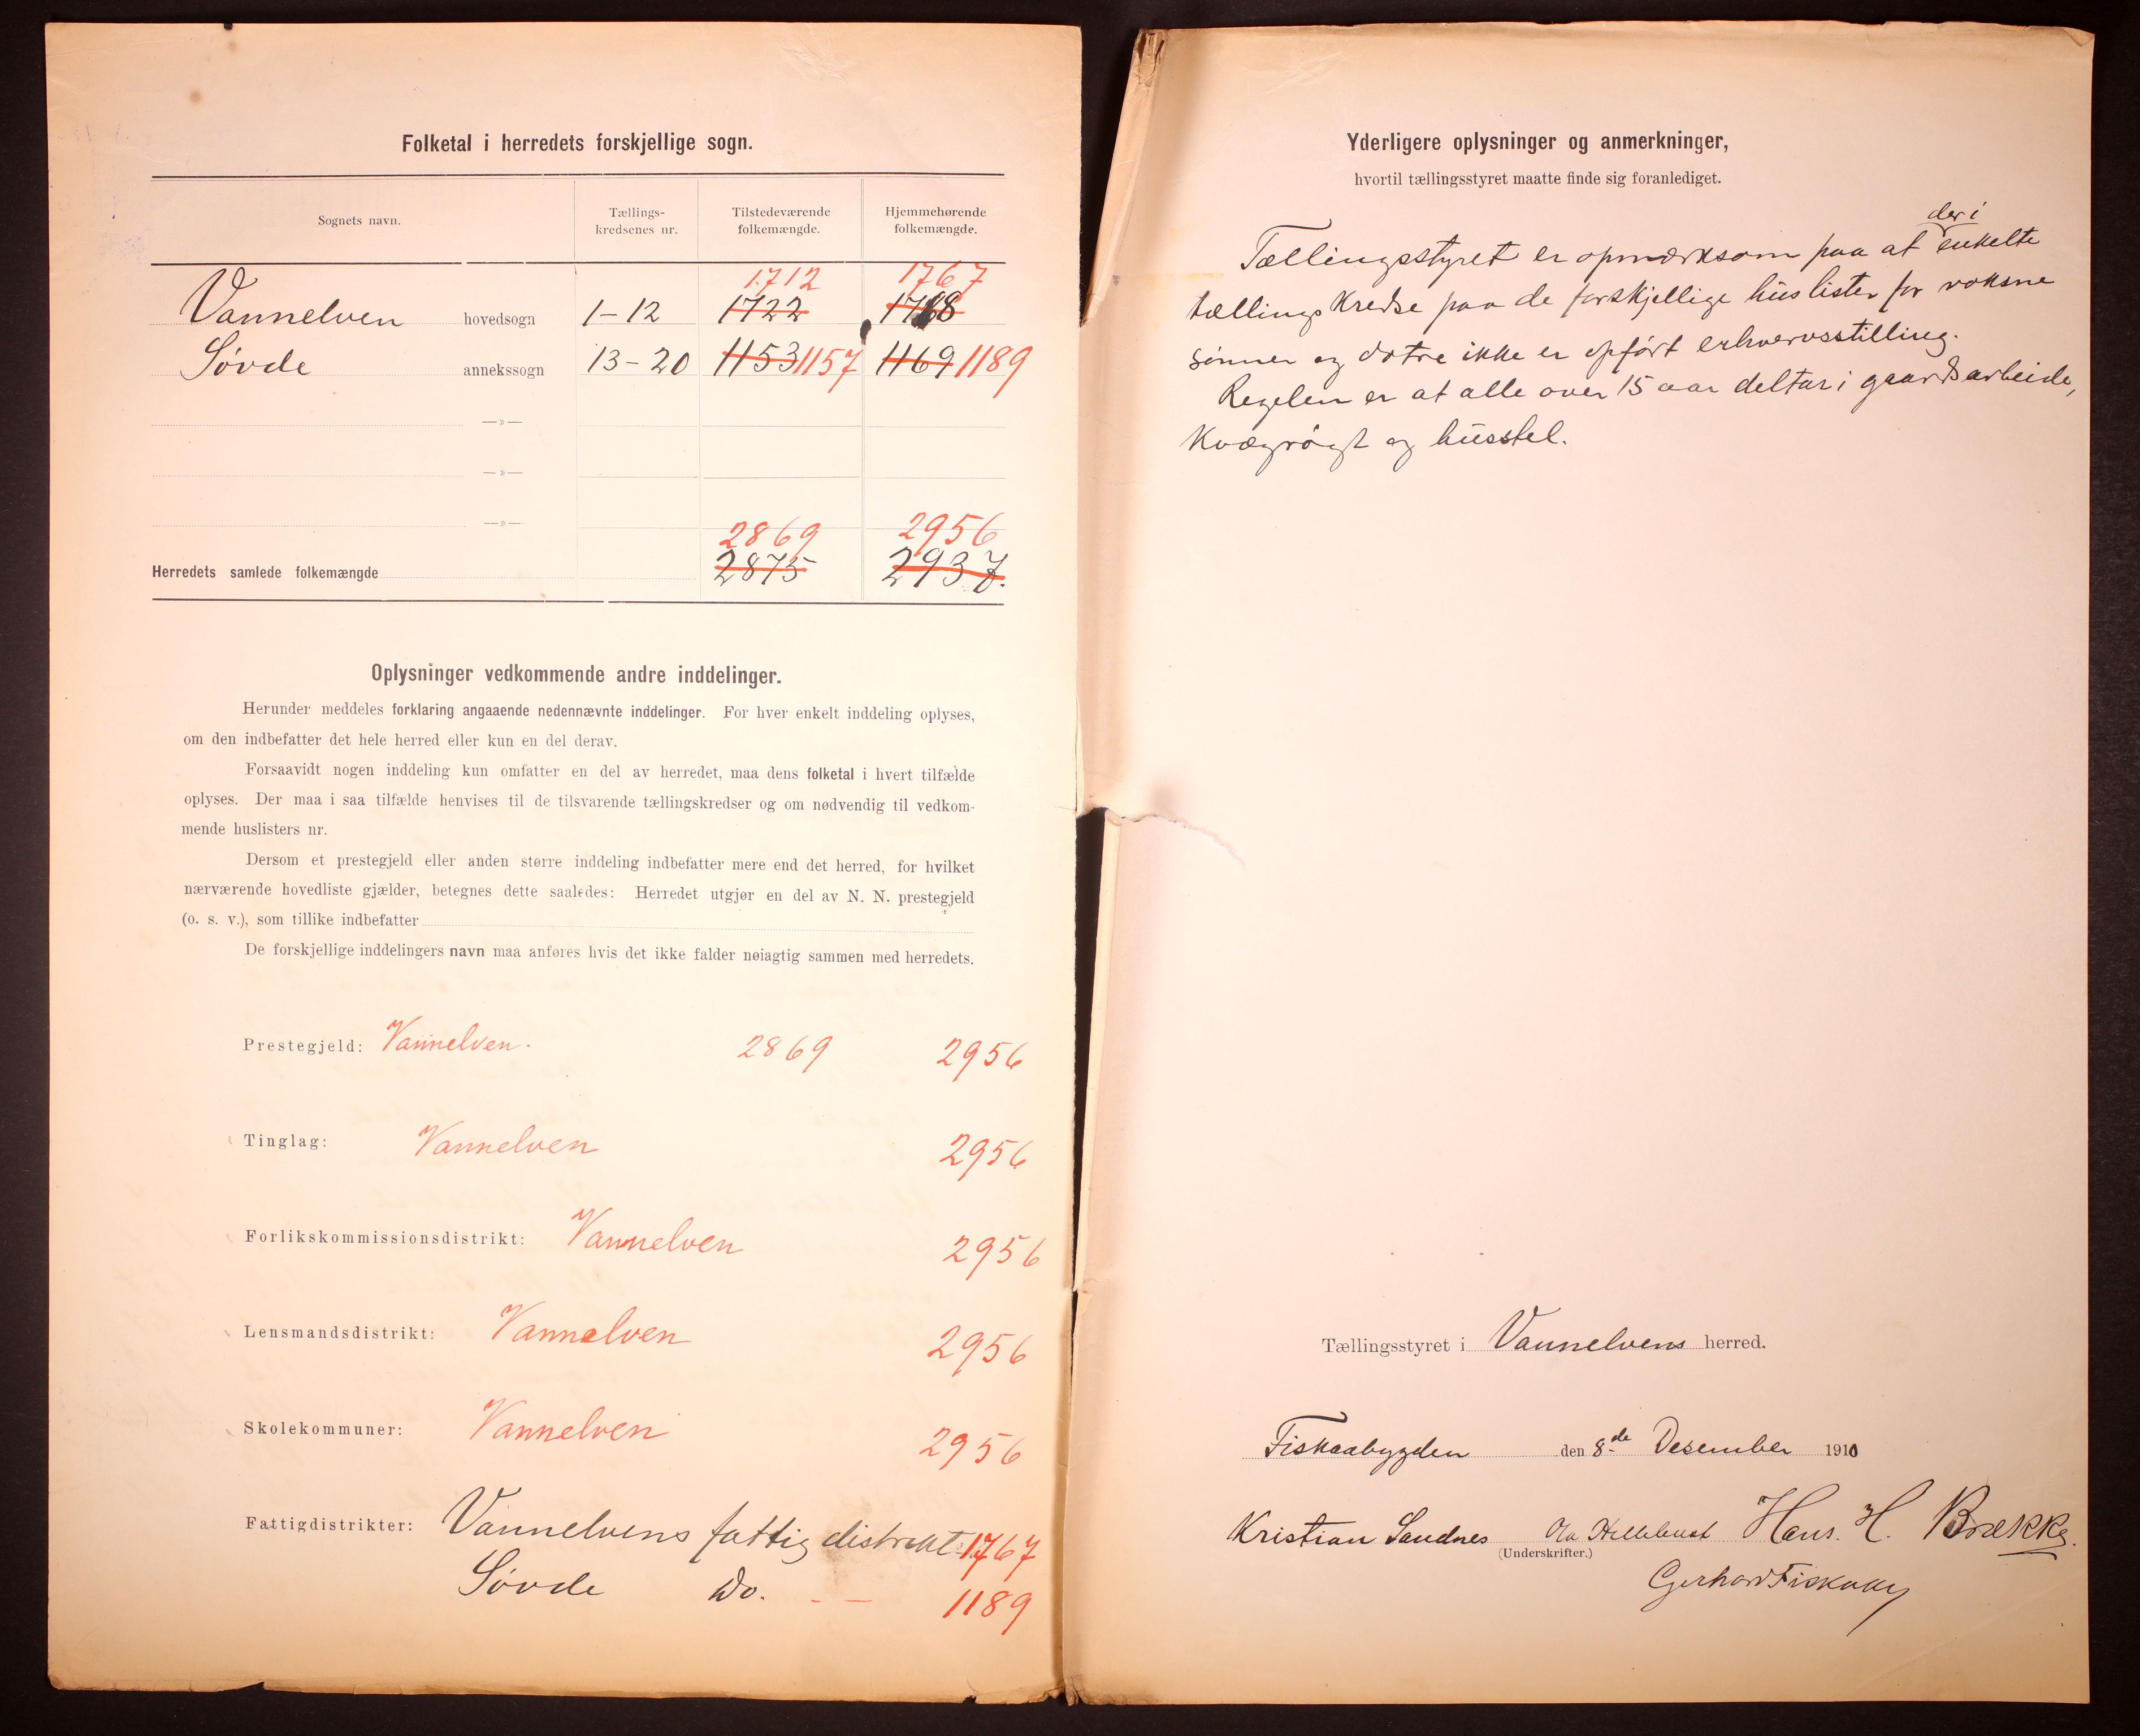 Folketal i herredets forskjellige sogn.
Sognets navn.
Tællings-
kredsenes nr.
Tilstedeværende
folkemængde.
Hjemmehørende
folkemængde.
1712 1767
Vannelven hovedsogn 1-12 1722
Søvde annekssogn 13-20 1153 1157 1169 1189
—»—
—»—
—»—
2869 2956
Herredets samlede folkemængde 2875 2937.
Oplysninger vedkommende andre inddelinger.
Herunder meddeles forklaring angaaende nedennævnte inddelinger. For hver enkelt inddeling oplyses,
om den indbefatter det hele herred eller kun en del derav.
Forsaavidt nogen inddeling kun omfatter en del av herredet, maa dens folketal i hvert tilfælde
oplyses. Der maa i saa tilfælde henvises til de tilsvarende tællingskredser og om nødvendig til vedkom-
mende huslisters nr.
Dersom et prestegjeld eller anden større inddeling indbefatter mere end det herred, for hvilket
nærværende hovedliste gjælder, betegnes dette saaledes: Herredet utgjør en del av N. N. prestegjeld
(o. s. v.), som tillike indbefatter
De forskjellige inddelingers navn maa anføres hvis det ikke falder nøiagtig sammen med herredets.
Prestegjeld: Vannelven. 2869 2956
Tinglag: Vannelven 2956
Forlikskommissionsdistrikt: Vannelven 2956
Lensmandsdistrikt: Vannelven 2956
Skolekommuner: Vannelven 2956
Fattigdistrikter: Vannelvens fattigdistrikt 1767
Søvde Do. — — 1189
Yderligere oplysninger og anmerkninger,
hvortil tællingsstyret maatte finde sig foranlediget.
der i
Tællingsstyret er opmærksom paa at enkelte
tællingskredse paa de forskjellige huslister for voksne
sønner og døtre ikke er opført erhvervsstilling.
Regelen er at alle over 15 aar deltar i gaardsarbeide,
kvægrøgt og husstel.
Tællingsstyret i Vannelvens herred.
Fiskaabygden den 8de Desember 1910
Kristian Sandnes Ola Hillebust Hans. H. Brække.
(Underskrifter.)
Gerhard Fiskaa